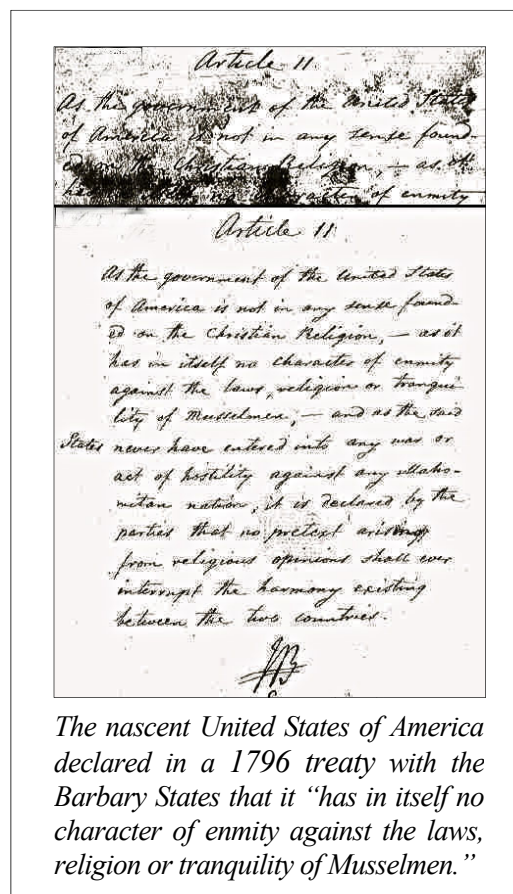 Article 11
As the government of the United States
of America is not in any sense found-
ed on the Christian Religion, — as it
of enmity
Article 11
As the government of the United States
of America is not in any sense found-
ed on the Christian Religion, — as it
has in itself no character of enmity
against the laws, religion or tranqui-
lity of Musselmen, — and as the said
States never have entered into any war or
act of hostility against any Maho-
mitan nation, it is declared by the
parties that no pretext arising
from religious opinions shall ever
interrupt the harmony existing
between the two countries.
The nascent United States of America
declared in a 1796 treaty with the
Barbary States that it “has in itself no
character of enmity against the laws,
religion or tranquility of Musselmen.”